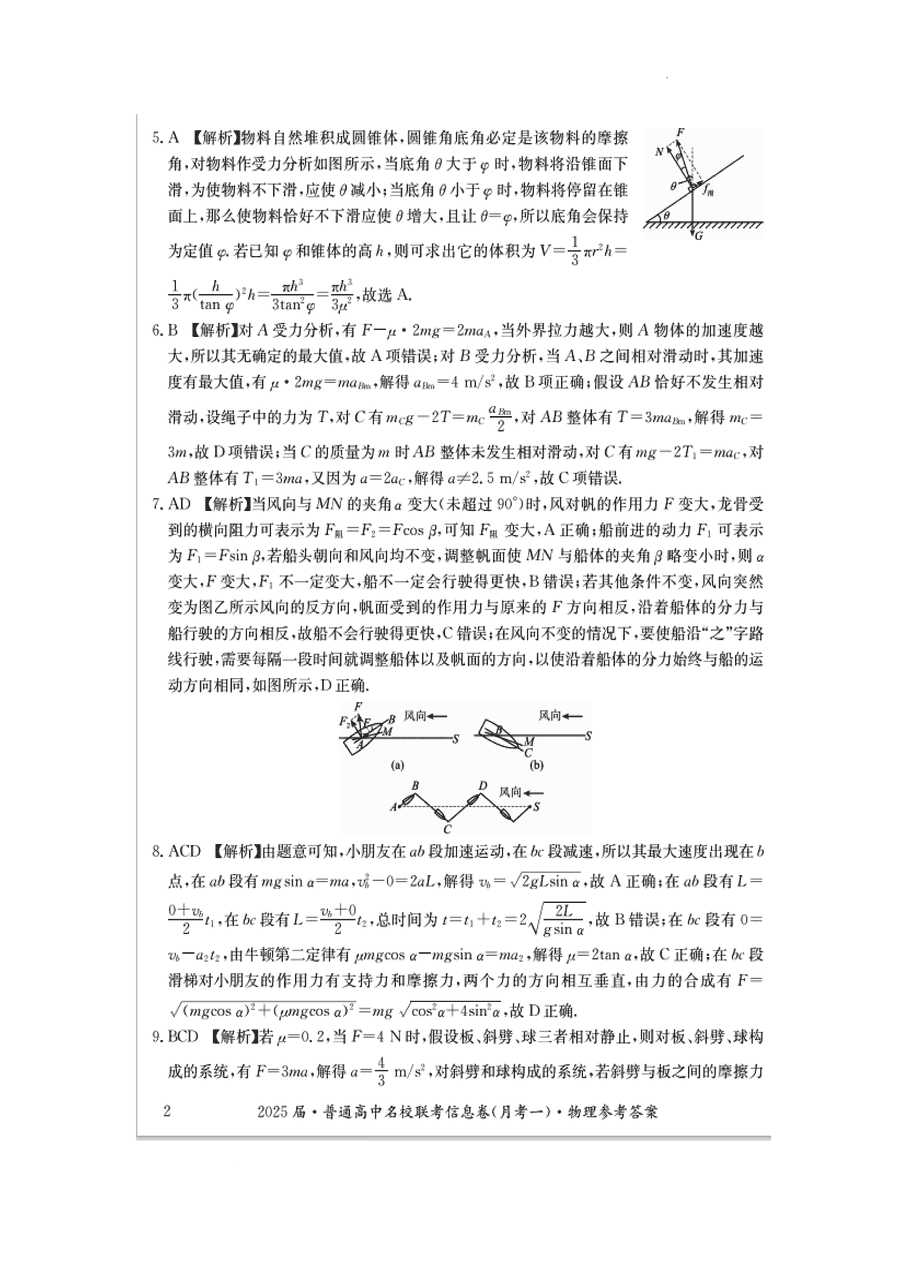 5. A 【解析】物料自然堆积成圆锥体,圆锥角底角必定是该物料的摩擦
角,对物料作受力分析如图所示,当底角 θ 大于 φ 时,物料将沿锥面下
滑,为使物料不下滑,应使 θ 减小;当底角 θ 小于 φ 时,物料将停留在锥
面上,那么使物料恰好不下滑应使 θ 增大,且让 θ=φ,所以底角会保持
为定值 φ. 若已知 φ 和锥体的高 h,则可求出它的体积为 V=1/3 πr²h=
1/3 π(h/tan φ)²h=πh³/3tan²φ=πh³/3μ²,故选 A.
F
N
φ
θ
f滑
θ
G
6. B 【解析】对 A 受力分析,有 F-μ·2mg=2maA,当外界拉力越大,则 A 物体的加速度越
大,所以其无确定的最大值,故 A 项错误;对 B 受力分析,当 A、B 之间相对滑动时,其加速
度有最大值,有 μ·2mg=maBm,解得 aBm=4 m/s²,故 B 项正确;假设 AB 恰好不发生相对
滑动,设绳子中的力为 T,对 C 有 mCg-2T=mC aBm/2,对 AB 整体有 T=3maBm,解得 mC=
3m,故 D 项错误;当 C 的质量为 m 时 AB 整体未发生相对滑动,对 C 有 mg-2T₁=maC,对
AB 整体有 T₁=3ma,又因为 a=2aC,解得 a≠2.5 m/s²,故 C 项错误.
7. AD 【解析】当风向与 MN 的夹角 α 变大(未超过 90°)时,风对帆的作用力 F 变大,龙骨受
到的横向阻力可表示为 F阻=F₂=Fcos β,可知 F阻 变大,A 正确;船前进的动力 F₁ 可表示
为 F₁=Fsin β,若船头朝向和风向均不变,调整帆面使 MN 与船体的夹角 β 略变小时,则 α
变大,F 变大,F₁ 不一定变大,船不一定会行驶得更快,B 错误;若其他条件不变,风向突然
变为图乙所示风向的反方向,帆面受到的作用力与原来的 F 方向相反,沿着船体的分力与
船行驶的方向相反,故船不会行驶得更快,C 错误;在风向不变的情况下,要使船沿“之”字路
线行驶,需要每隔一段时间就调整船体以及帆面的方向,以使沿着船体的分力始终与船的运
动方向相同,如图所示,D 正确.
F
F₂ B 风向 风向
M B
A S M S
C
(a) (b)
B D 风向
A S
C
8. ACD 【解析】由题意可知,小朋友在 ab 段加速运动,在 bc 段减速,所以其最大速度出现在 b
点,在 ab 段有 mgsin α=ma,vb²-0=2aL,解得 vb=√(2gLsin α),故 A 正确;在 ab 段有 L=
(0+vb)/2 t₁,在 bc 段有 L=(vb+0)/2 t₂,总时间为 t=t₁+t₂=2√(2L/gsin α),故 B 错误;在 bc 段有 0=
vb-a₂t₂,由牛顿第二定律有 μmgcos α-mgsin α=ma₂,解得 μ=2tan α,故 C 正确;在 bc 段
滑梯对小朋友的作用力有支持力和摩擦力,两个力的方向相互垂直,由力的合成有 F=
√((mgcos α)²+(μmgcos α)²)=mg √(cos²α+4sin²α),故 D 正确.
9. BCD 【解析】若 μ=0.2,当 F=4 N 时,假设板、斜劈、球三者相对静止,则对板、斜劈、球构
成的系统,有 F=3ma,解得 a=4/3 m/s²,对斜劈和球构成的系统,若斜劈与板之间的摩擦力
2 2025 届·普通高中名校联考信息卷(月考一)·物理参考答案